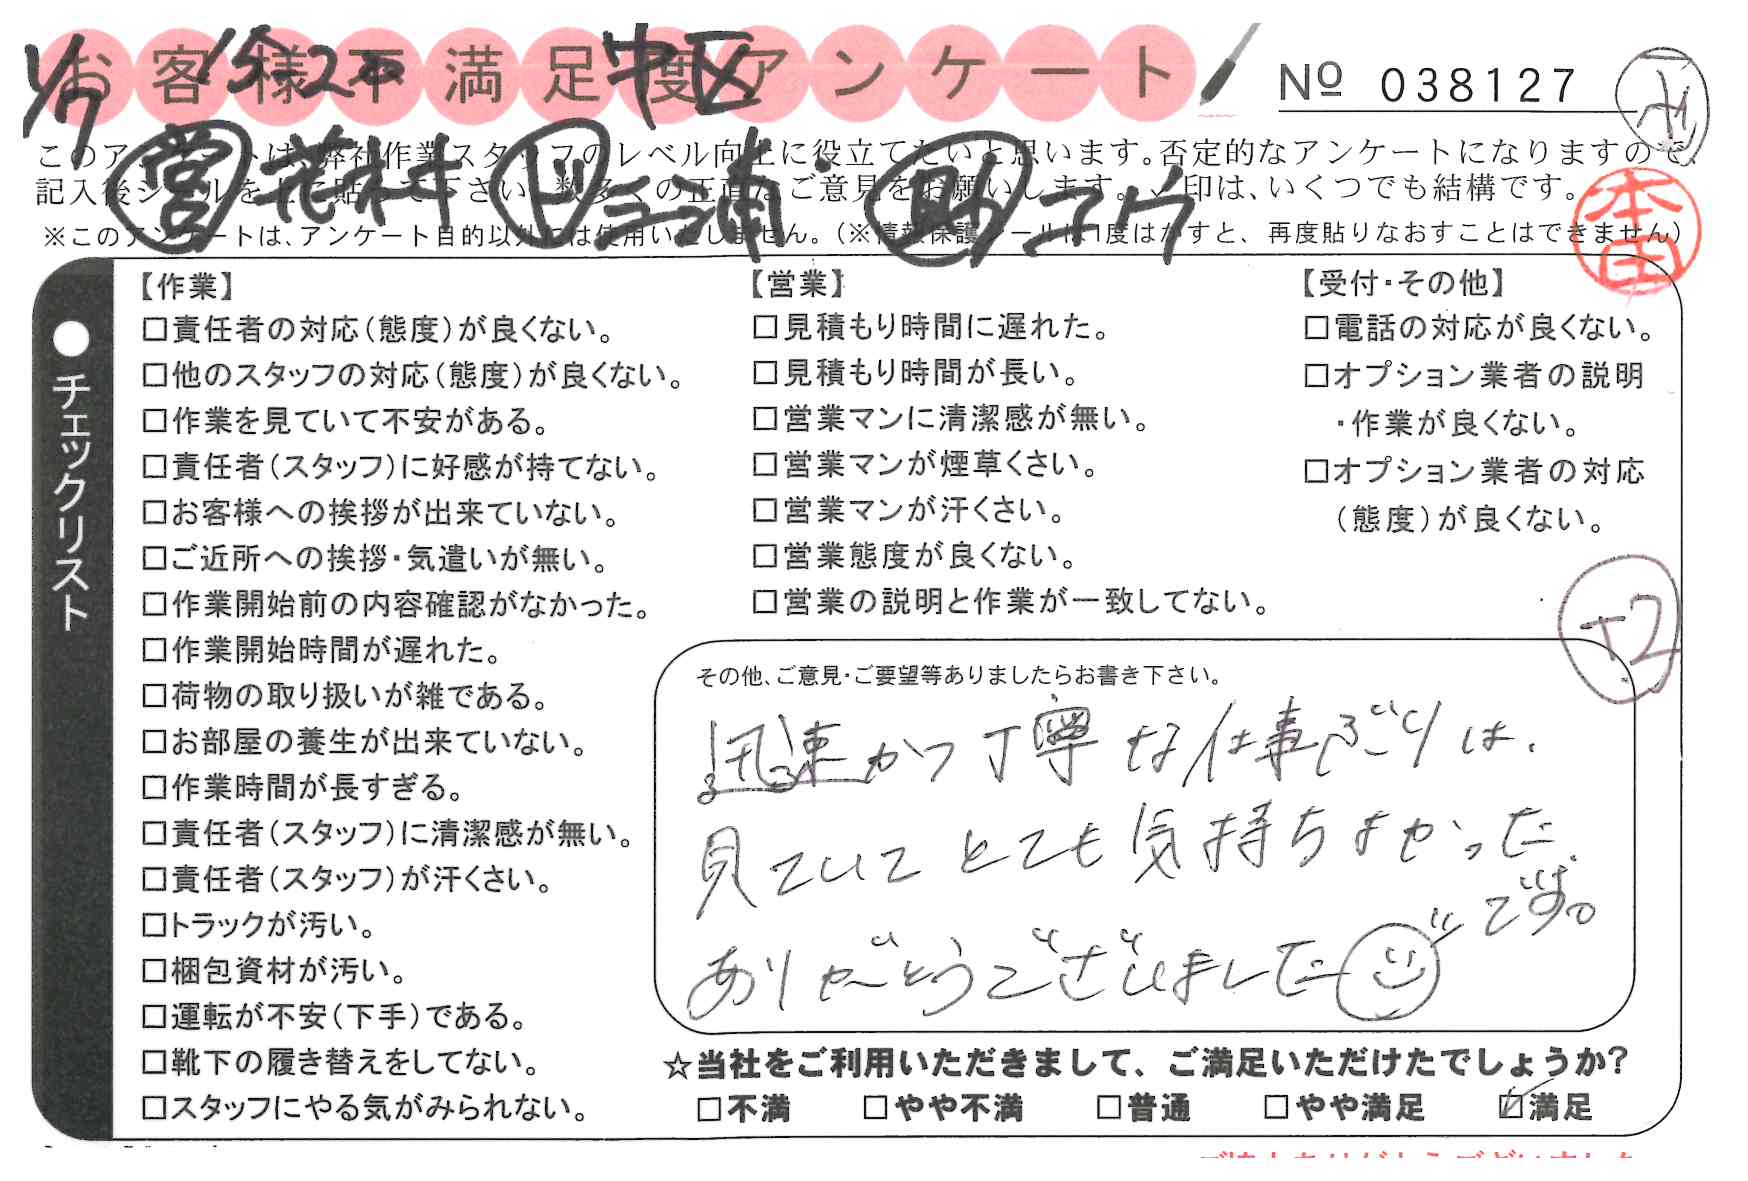 お客様不満足度アンケート
№ 038127
1/7 中区
このアンケートは、弊社作業スタッフのレベル向上に役立てたいと思います。否定的なアンケートになりますので、
営 ド 三浦 助
記入後シールを上に貼って下さい。数多くの正直なご意見をお願いします。✓印は、いくつでも結構です。
※このアンケートは、アンケート目的以外には使用いたしません。(※情報保護シールは1度はがすと、再度貼りなおすことはできません)
本田
●チェックリスト
【作業】
□責任者の対応(態度)が良くない。
□他のスタッフの対応(態度)が良くない。
□作業を見ていて不安がある。
□責任者(スタッフ)に好感が持てない。
□お客様への挨拶が出来ていない。
□ご近所への挨拶・気遣いが無い。
□作業開始前の内容確認がなかった。
□作業開始時間が遅れた。
□荷物の取り扱いが雑である。
□お部屋の養生が出来ていない。
□作業時間が長すぎる。
□責任者(スタッフ)に清潔感が無い。
□責任者(スタッフ)が汗くさい。
□トラックが汚い。
□梱包資材が汚い。
□運転が不安(下手)である。
□靴下の履き替えをしてない。
□スタッフにやる気がみられない。
【営業】
□見積もり時間に遅れた。
□見積もり時間が長い。
□営業マンに清潔感が無い。
□営業マンが煙草くさい。
□営業マンが汗くさい。
□営業態度が良くない。
□営業の説明と作業が一致してない。
【受付・その他】
□電話の対応が良くない。
□オプション業者の説明
・作業が良くない。
□オプション業者の対応
(態度)が良くない。
+2
その他、ご意見・ご要望等ありましたらお書き下さい。
迅速かつ丁寧な仕事ぶりは、
見ていてとても気持ちよかった
です。
ありがとうございました
☆当社をご利用いただきまして、ご満足いただけたでしょうか?
□不満 □やや不満 □普通 □やや満足 ☑満足